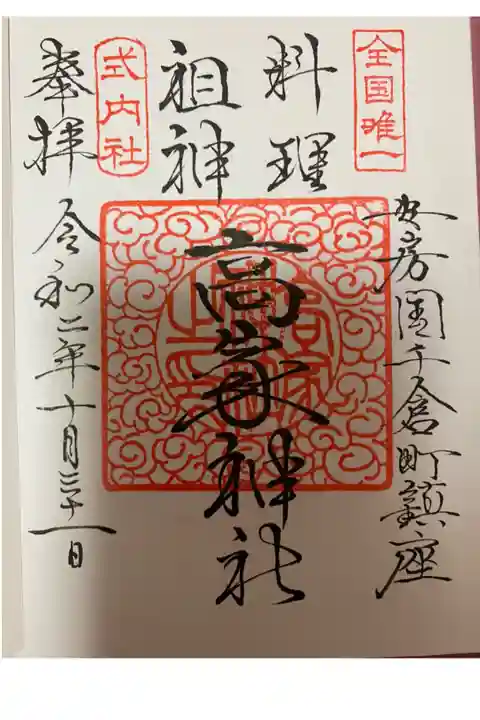 全国唯一
安房國千倉町鎮座
料理
祖神
高家神社
式内社
奉拝
令和二年十月三十一日